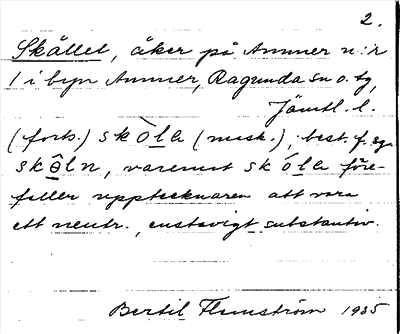 2.
Skållet, åker på Ammer n:r
1 i byn Ammer, Ragunda sn o. tg,
Jämtl. l.
(forts.) skòla (mask.), best. f. sg.
skô̱ln, varemot skóla före-
faller upptecknaren att vara
ett neutr., enstavigt substantiv.
Bertil Flemström 1935